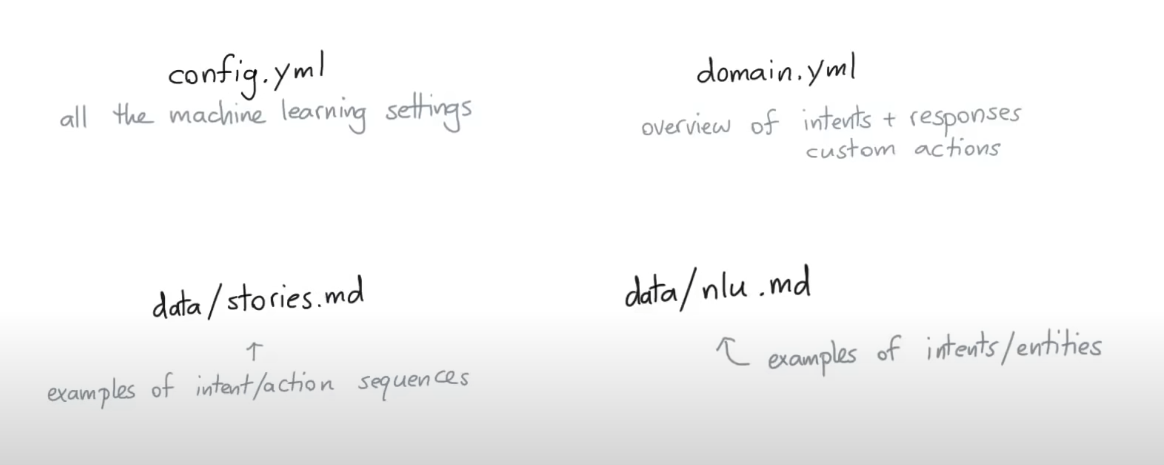 config.yml
all the machine learning settings
domain.yml
overview of intents + responses
custom actions
data/stories.md
↑
examples of intent/action sequences
data/nlu.md
examples of intents/entities